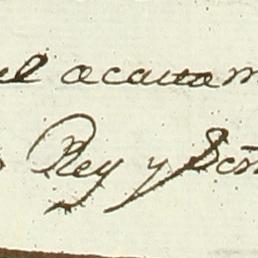 el acatam
Rey y Señ